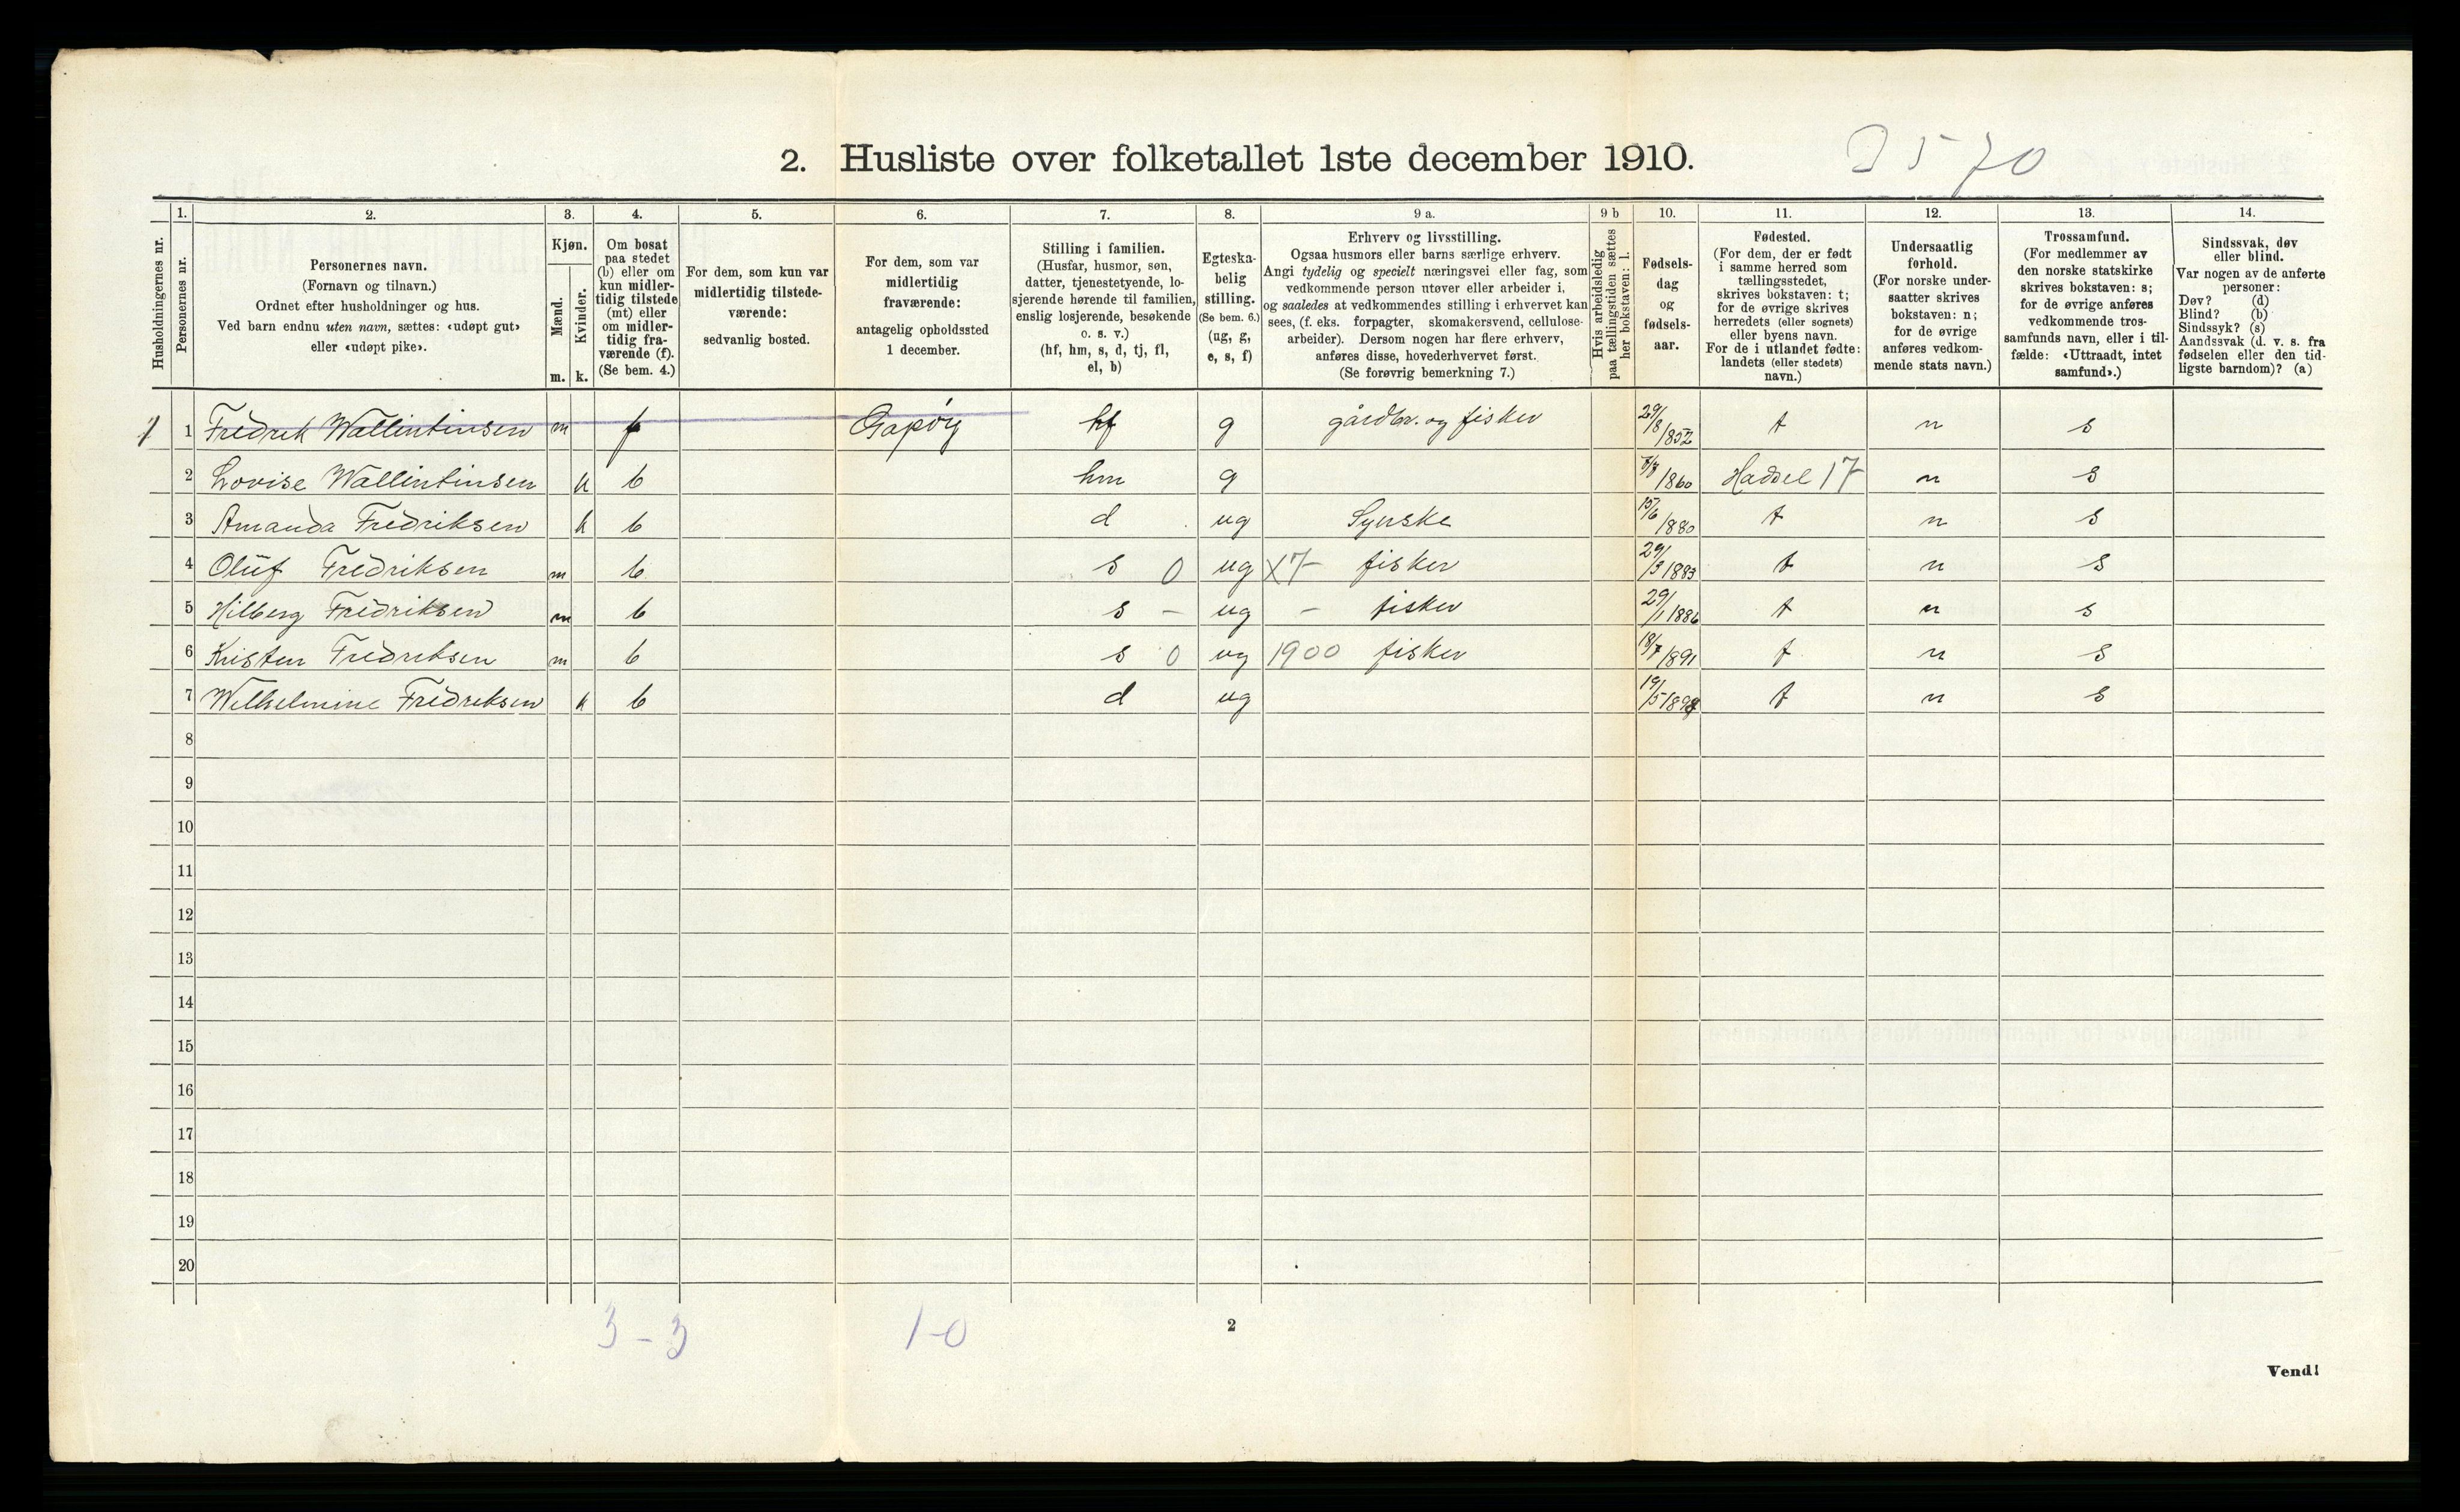 2. Husliste over folketallet 1ste december 1910. 3570
Husholdningernes nr.
1. Personernes nr.
2. Personernes navn. (Fornavn og tilnavn.) Ordnet efter husholdninger og hus. Ved barn endnu uten navn, sættes: «udøpt gut» eller «udøpt pike».
3. Kjøn. Mænd. m. Kvinder. k.
4. Om bosat paa stedet (b) eller om kun midlertidig tilstede (mt) eller om midlertidig fraværende (f). (Se bem. 4.)
5. For dem, som kun var midlertidig tilstedeværende: sedvanlig bosted.
6. For dem, som var midlertidig fraværende: antagelig opholdssted 1 december.
7. Stilling i familien. (Husfar, husmor, søn, datter, tjenestetyende, losjerende hørende til familien, enslig losjerende, besøkende o. s. v.) (hf, hm, s, d, tj, fl, el, b)
8. Egteskabelig stilling. (Se bem. 6.) (ug, g, e, s, f)
9 a. Erhverv og livsstilling. Ogsaa husmors eller barns særlige erhverv. Angi tydelig og specielt næringsvei eller fag, som vedkommende person utøver eller arbeider i, og saaledes at vedkommendes stilling i erhvervet kan sees, (f. eks. forpagter, skomakersvend, cellulosearbeider). Dersom nogen har flere erhverv, anføres disse, hovederhvervet først. (Se forøvrig bemerkning 7.)
9 b Hvis arbeidsledig paa tællingstiden sættes her bokstaven: l.
10. Fødselsdag og fødselsaar.
11. Fødested. (For dem, der er født i samme herred som tællingsstedet, skrives bokstaven: t; for de øvrige skrives herredets (eller sognets) eller byens navn. For de i utlandet fødte: landets (eller stedets) navn.)
12. Undersaatlig forhold. (For norske undersaatter skrives bokstaven: n; for de øvrige anføres vedkommende stats navn.)
13. Trossamfund. (For medlemmer av den norske statskirke skrives bokstaven: s; for de øvrige anføres vedkommende trossamfunds navn, eller i tilfælde: «Uttraadt, intet samfund».)
14. Sindssvak, døv eller blind. Var nogen av de anførte personer: Døv? (d) Blind? (b) Sindssyk? (s) Aandssvak (d. v. s. fra fødselen eller den tidligste barndom)? (a)
1 1 Fredrik Wallintinsen m f Gapøy hf g gårdbr. og fisker 29/8 1852 t n s
2 Lovise Wallintinsen k b hm g 1860 Hadsel 17 n s
3 Amanda Fredriksen k b d ug Syerske 15/6 1880 t n s
4 Oluf Fredriksen m b s 0 ug X7- fisker 29/3 1883 t n s
5 Hilberg Fredriksen m b s - ug - fisker 29/1 1886 t n s
6 Kristen Fredriksen m b s 0 ug 1900 fisker 18/7 1891 t n s
7 Wilhelmine Fredriksen k b d ug 19/5 1898 t n s
8
9
10
11
12
13
14
15
16
17
18
19
20
3-3 1-0
2
Vend!